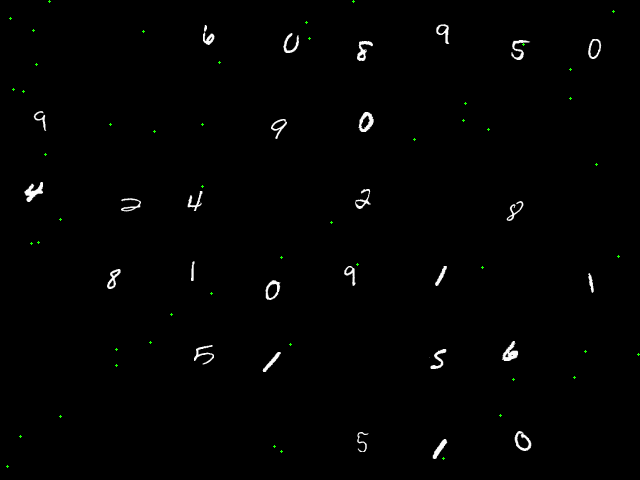 6 0 8 9 5 0
9 9 0
4 2 4 2 8
8 1 0 9 1 1
5 1 5 6
5 1 0